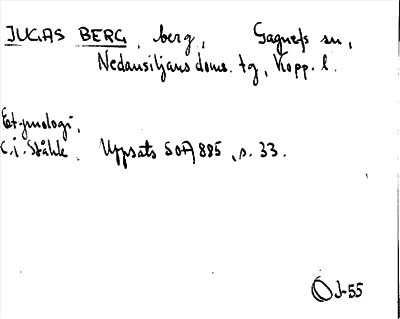 JUGAS BERG, berg, Gagnefs sn,
Nedansiljans doms. tg, Kopp. l.
Etymologi.
C.I. Ståhle, Uppsats SOA 885, s. 33.
J-55